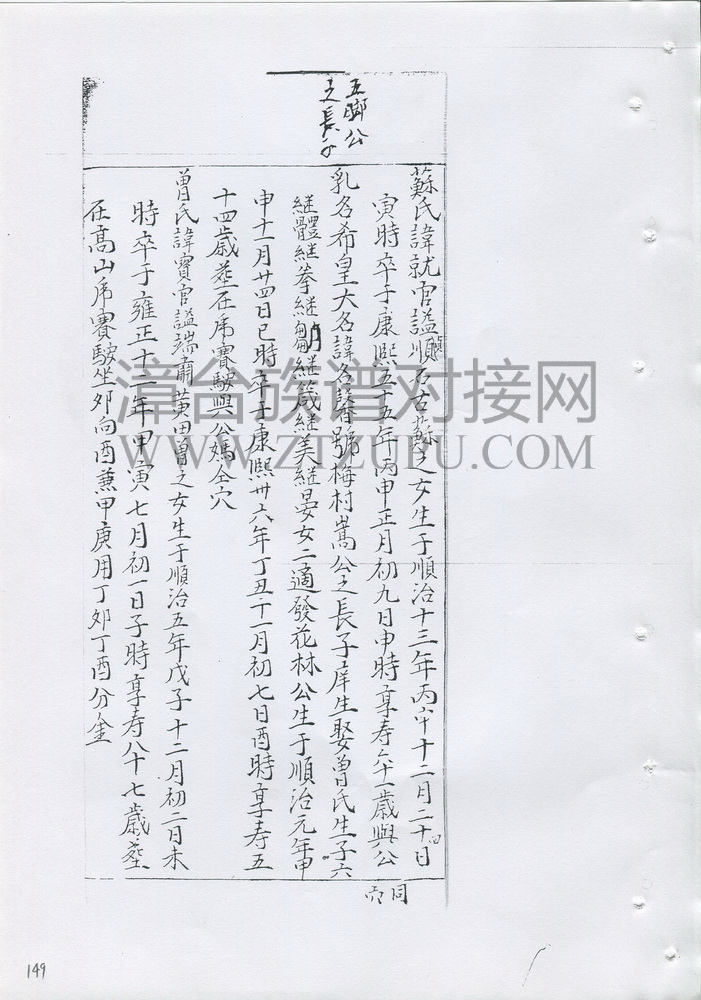 五腳公
之長子
蘇氏諱就官謚順 石古蘇之女生于順治十三年丙申十二月二十四日
寅時卒于康熙五十五年丙申正月初九日申時享壽六十一歲與公
同穴
乳名希皇大名諱名馨號梅村嵩公之長子庠生娶曾氏生子六
継體継拳継 継箴継美継晏女二適發花林公生于順治元年甲
申十一月廿四日巳時卒于康熙卅六年丁丑十一月初七日酉時享寿五
十四歲葬在虎賽 與公媽仝穴
曾氏諱寶官謚端肅黃田曾之女生于順治五年戊子十二月初二日未
時卒于雍正十二年甲寅七月初一日子時享寿八十七歲葬
在高山虎賽 坐夘向酉兼甲庚用丁夘丁酉分金
漳台族谱对接网
WWW.ZTZUPU.COM
149